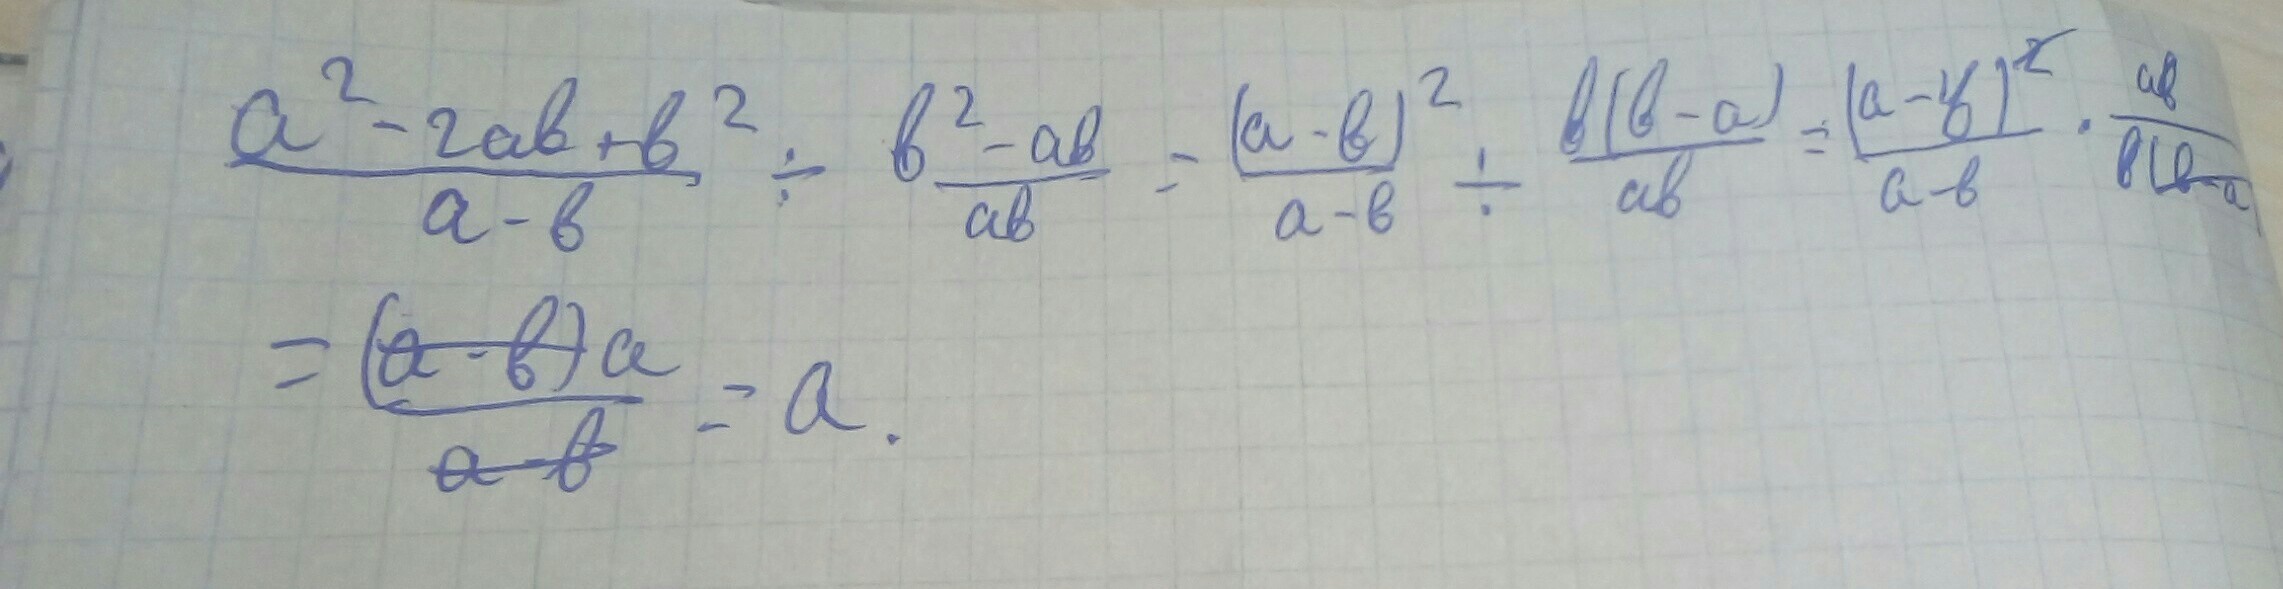 (a² - 2ab + b²)/(a - b) ÷ (b² - ab)/(ab) = (a - b)²/(a - b) ÷ b(b - a)/(ab) = (a - b)²/(a - b) · ab/(b(b - a)
= (a - b)a/(a - b) = a.